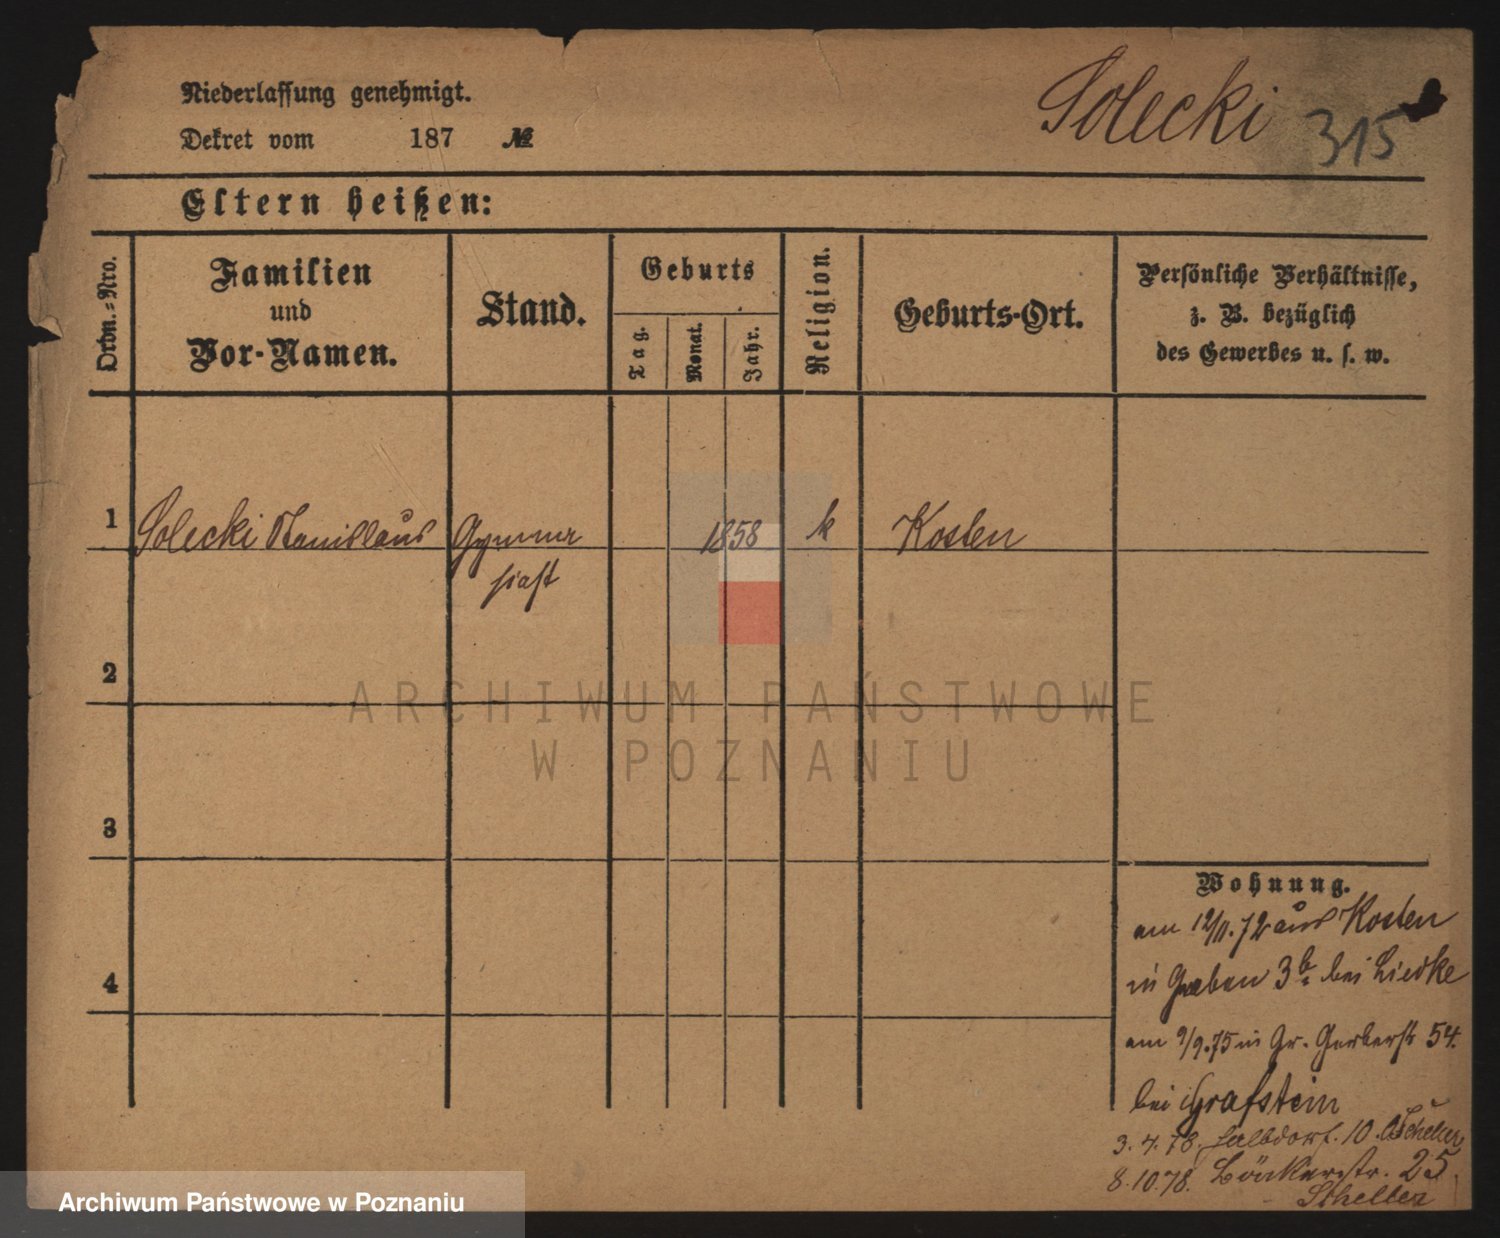 Niederlassung genehmigt.
Solecki 315
Dekret vom 187 №
Eltern heißen:
Ordn.=Nro.
Familien
und
Vor-Namen.
Stand.
Geburts
Tag.
Monat.
Jahr.
Religion.
Geburts-Ort.
Persönliche Verhältnisse,
z. B. bezüglich
des Gewerbes u. s. w.
1 Solecki Stanislaus Gymna 1858 k Kosten
siast
2
3
4
Wohnung.
am 12/11.72 aus Kosten
in Graben 3b. bei Liedke
am 9/9.75 in Gr. Gerberstr 54.
bei Grafstein
3.4.78. Halbdorf. 10.
8.10.78. Bäckerstr. 25
ARCHIWUM PAŃSTWOWE
W POZNANIU
Archiwum Państwowe w Poznaniu